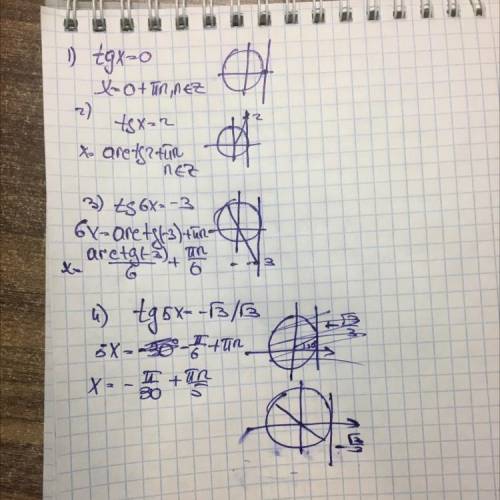 1) tgx=0
x=0+πn, n∈z
2)
tgx=2
2
x= arctg2+πn
n∈z
3) tg6x=-3
6x=arctg(-3)+πn
x= arctg(-3)/6 + πn/6
-3
4) tg5x=-√3/√3
5x=-30° -π/6+πn
x= -π/30 + πn/5
-√3/3